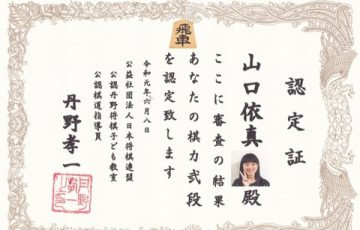 飛車
認定証
山口依真殿
ここに審査の結果
あなたの棋力弐段
を認定致します
令和元年六月八日
公益社団法人日本将棋連盟
公認丹野将棋子ども教室
公認棋道指導員
丹野孝一